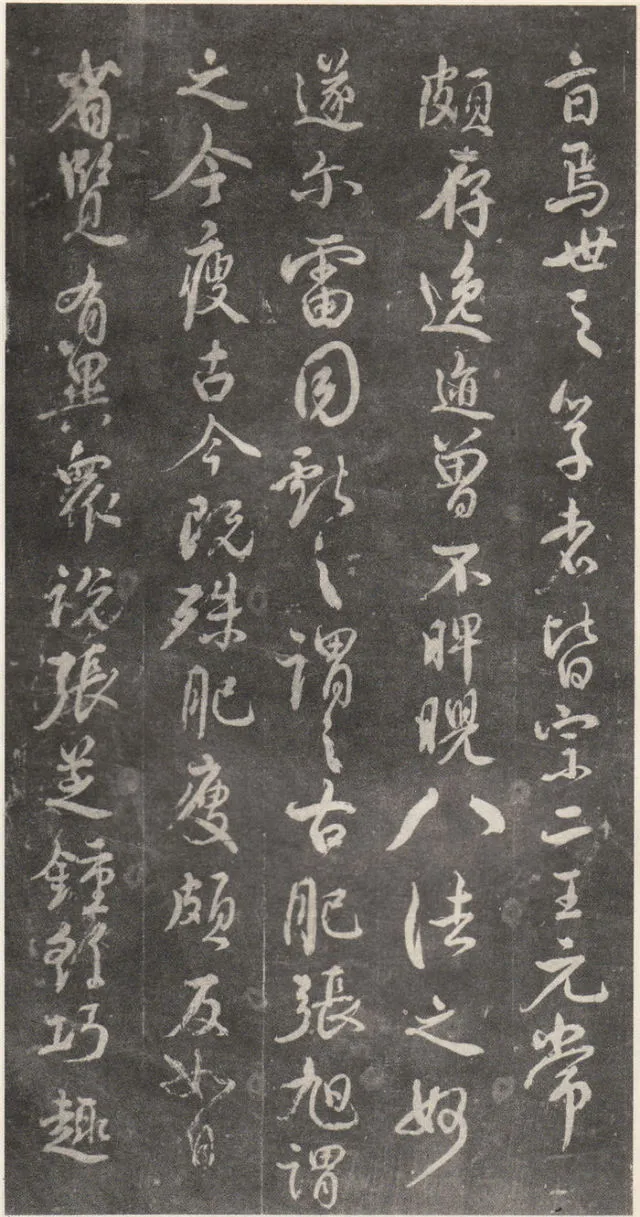 焉世之學者皆宗二王元常
頗存逸迹曾不睥睨八法之妙
遂尓雷同獻之謂之古肥張旭謂
之今瘦古今既殊肥瘦頗反如自
省覽有異衆說張芝鍾繇巧趣